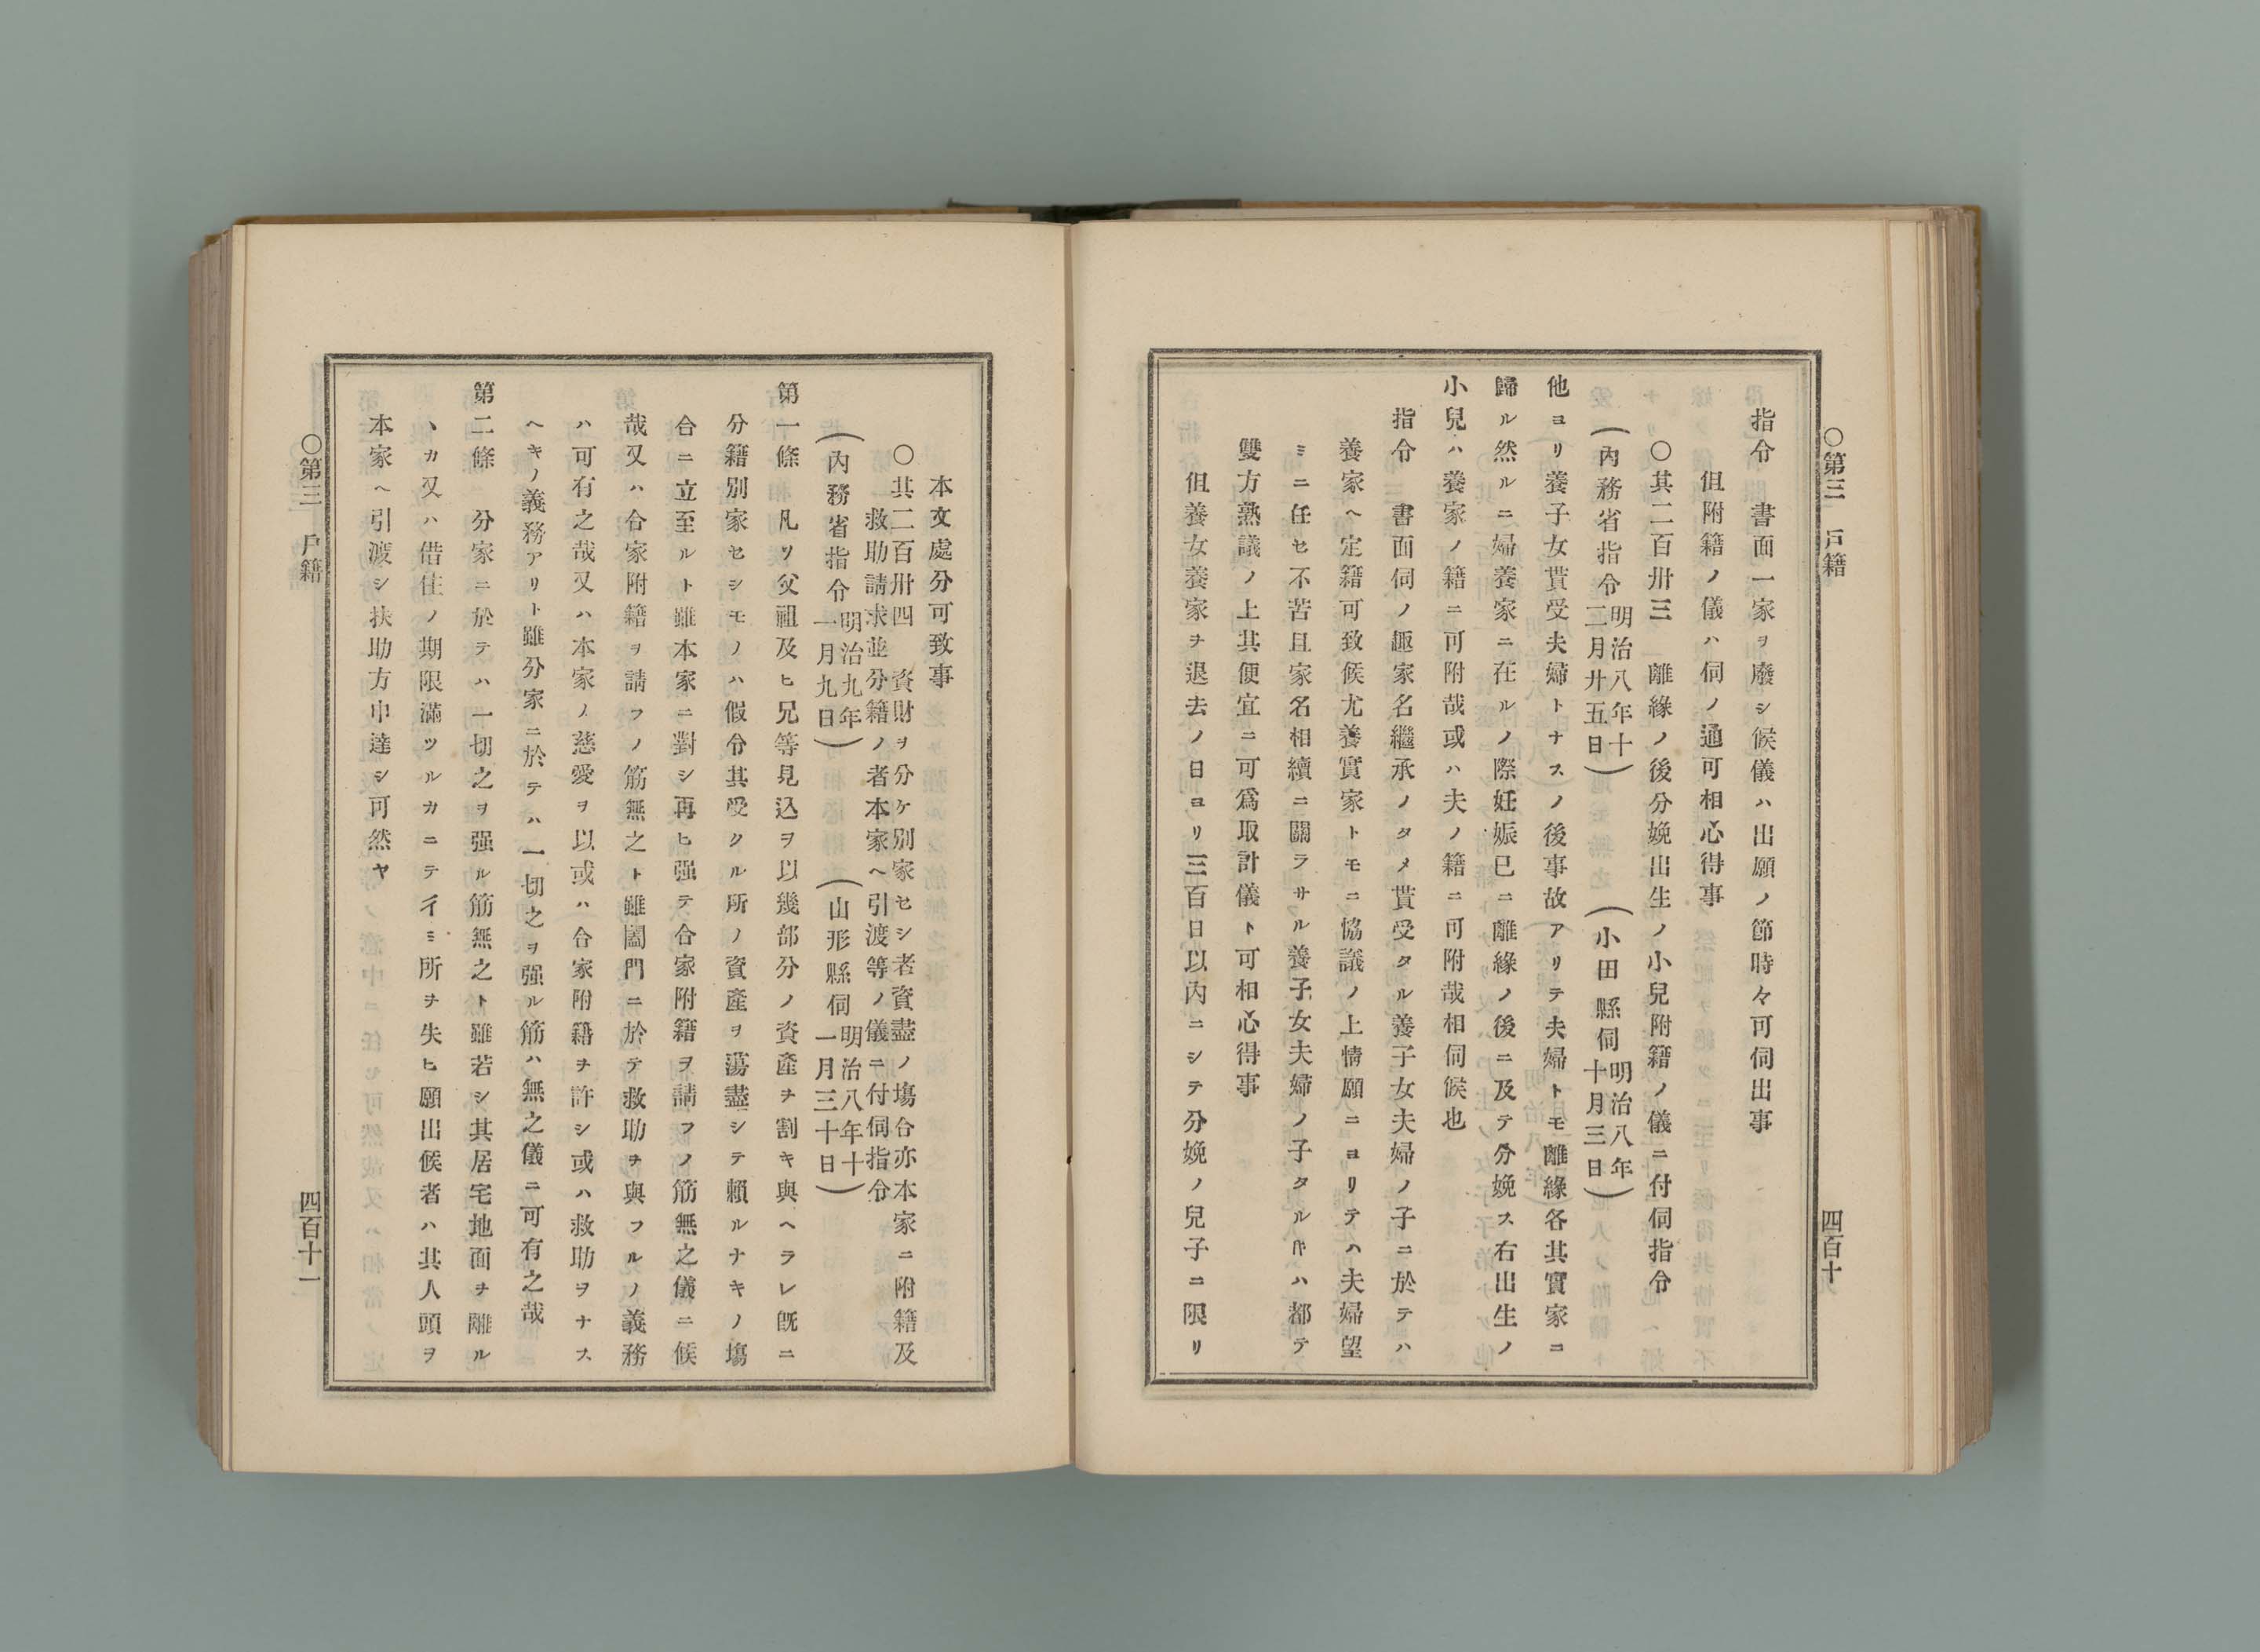 ○第三　戶籍
四百十
指令　書面一家ヲ廢シ候儀ハ出願ノ節時々可伺出事
但附籍ノ儀ハ伺ノ通可相心得事
○其二百卅三　離緣ノ後分娩出生ノ小兒附籍ノ儀ニ付伺指令
（小田縣伺明治八年十月三日）
（內務省指令明治八年十二月廿五日）
他ヨリ養子女貰受夫婦トナスノ後事故アリテ夫婦トモ離緣各其實家ニ
歸ル然ルニ婦養家ニ在ルノ際妊娠已ニ離緣ノ後ニ及テ分娩ス右出生ノ
小兒ハ養家ノ籍ニ可附哉或ハ夫ノ籍ニ可附哉相伺候也
指令　書面伺ノ趣家名繼承ノタメ貰受タル養子女夫婦ノ子ニ於テハ
養家ヘ定籍可致候尤養實家トモニ協議ノ上情願ニヨリテハ夫婦望
ミニ任セ不苦且家名相續ニ關ラサル養子女夫婦ノ子タル𪜈ハ都テ
雙方熟議ノ上其便宜ニ可爲取計儀ト可相心得事
但養女養家ヲ退去ノ日ヨリ三百日以內ニシテ分娩ノ兒子ニ限リ
本文處分可致事
○其二百卅四　資財ヲ分ケ別家セシ者資盡ノ塲合亦本家ニ附籍及
救助請求並分籍ノ者本家ヘ引渡等ノ儀ニ付伺指令
（山形縣伺明治八年十一月三十日）
（內務省指令明治九年一月九日）
第一條　凡ソ父祖及ヒ兄等見込ヲ以幾部分ノ資產ヲ割キ與ヘラレ旣ニ
分籍別家セシモノハ假令其受クル所ノ資產ヲ蕩盡シテ賴ルナキノ塲
合ニ立至ルト雖本家ニ對シ再ヒ强テ合家附籍ヲ請フノ筋無之儀ニ候
哉又ハ合家附籍ヲ請フノ筋無之ト雖闔門ニ於テ救助ヲ與フルノ義務
ハ可有之哉又ハ本家ノ慈愛ヲ以或ハ合家附籍ヲ許シ或ハ救助ヲナス
ヘキノ義務アリト雖分家ニ於テハ一切之ヲ强ル筋ハ無之儀ニ可有之哉
第二條　分家ニ於テハ一切之ヲ强ル筋無之ト雖若シ其居宅地面ヲ離ル
ヽカ又ハ借住ノ期限滿ツルカニテイミ所ヲ失ヒ願出候者ハ其人頭ヲ
本家ヘ引渡シ扶助方申達シ可然ヤ
○第三　戶籍
四百十一